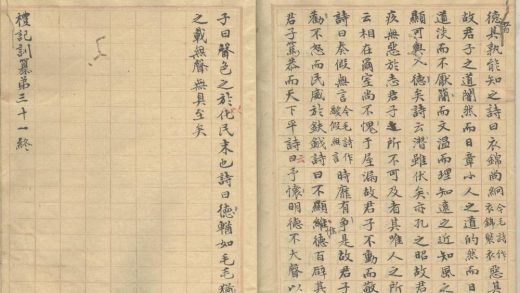 德其孰能知之詩曰衣錦尚絅今毛詩作衣錦褧衣惡其
故君子之道闇然而日章小人之道的然而日
道淡而不厭簡而文溫而理知遠之近知風之
顯可與入德矣詩云潛雖伏矣亦孔之昭故君
疚無惡於志君子之所不可及者其唯人之所
云相在爾室尚不愧于屋漏故君子不動而敬
詩曰奏假無言今毛詩作鬷假無言時靡有爭是故君子
勸不怒而民威於鈇鉞詩曰不顯維德百辟其
君子篤恭而天下平詩曰予懷明德不大聲以
子曰聲色之於化民末也詩曰德輶如毛毛猶
之載無聲無臭至矣
禮記訓纂第三十一終